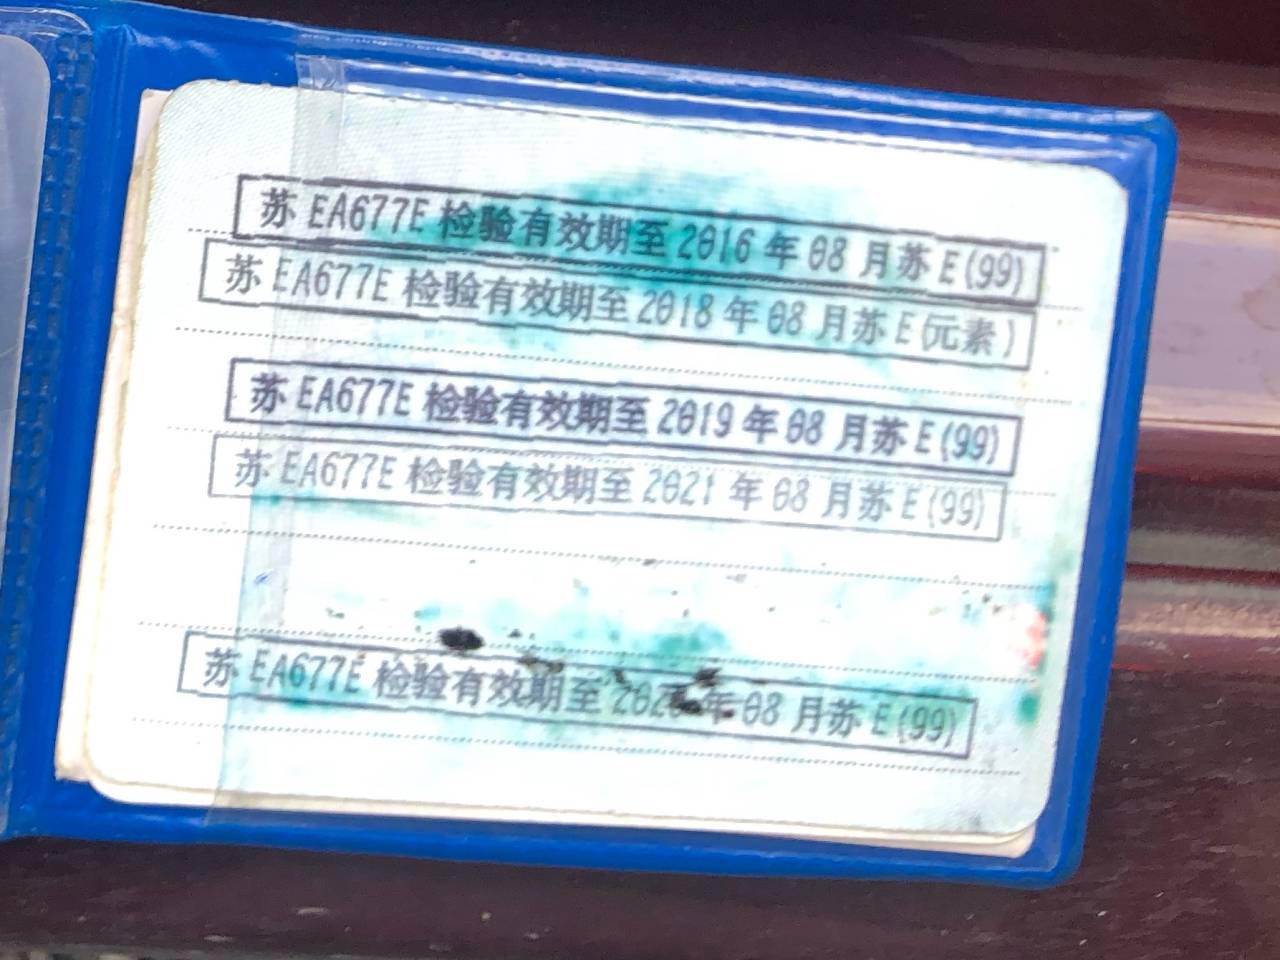 苏 EA677E 检验有效期至 2016 年 08 月苏 E(99)
苏 EA677E 检验有效期至 2018 年 08 月苏 E(元素)
苏 EA677E 检验有效期至 2019 年 08 月苏 E(99)
苏 EA677E 检验有效期至 2021 年 08 月苏 E(99)
苏 EA677E 检验有效期至 年 08 月苏 E(99)